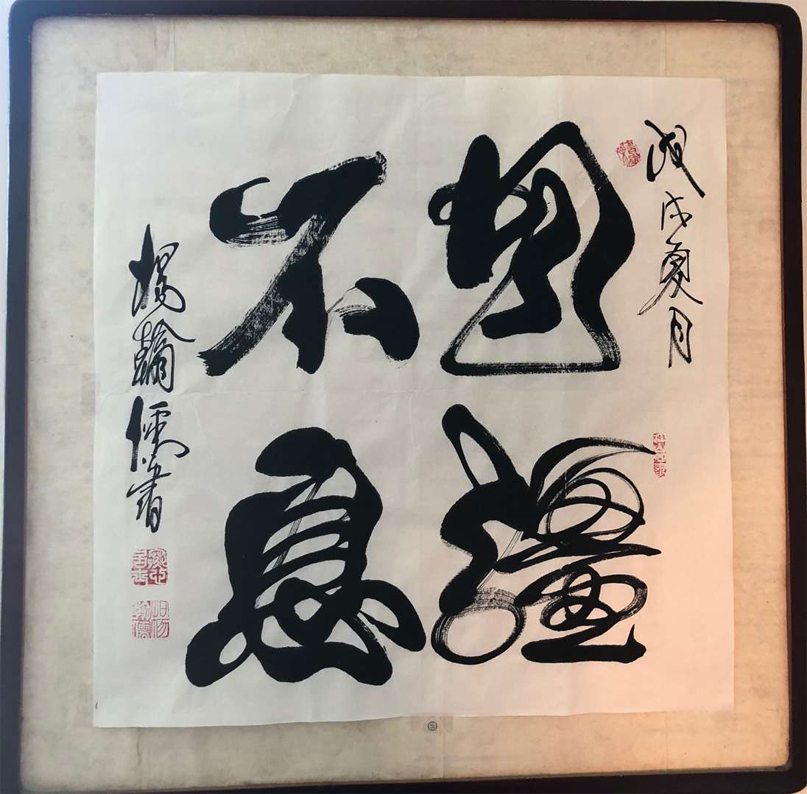 戊戌夏月
自彊
不息
楊翰儒書